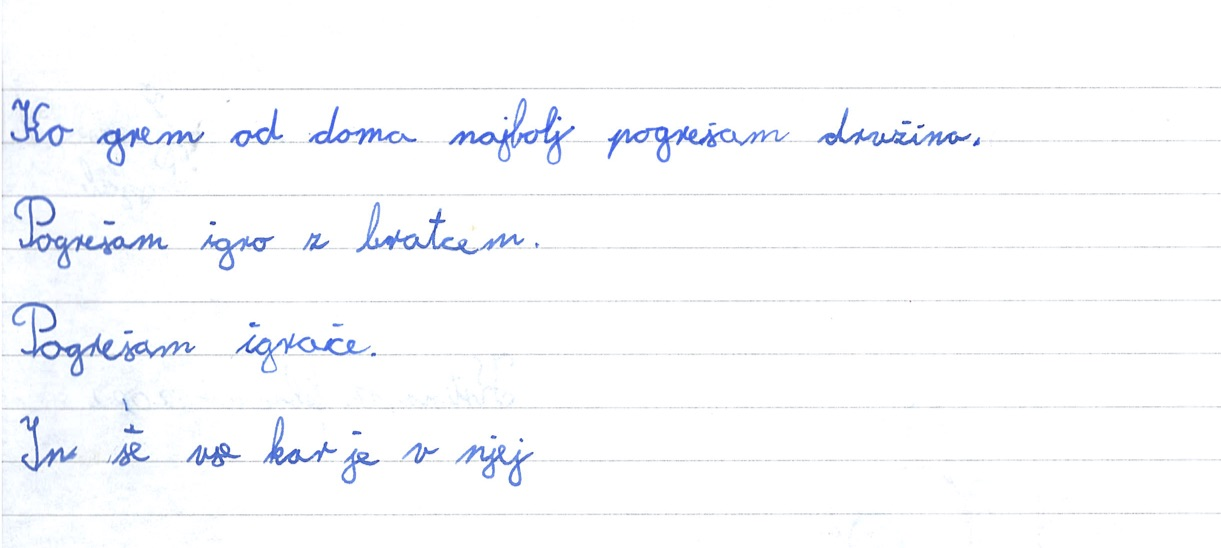 Ko grem od doma najbolj pogrešam družino.
Pogrešam igro z bratcem.
Pogrešam igrače.
In še vse kar je v njej